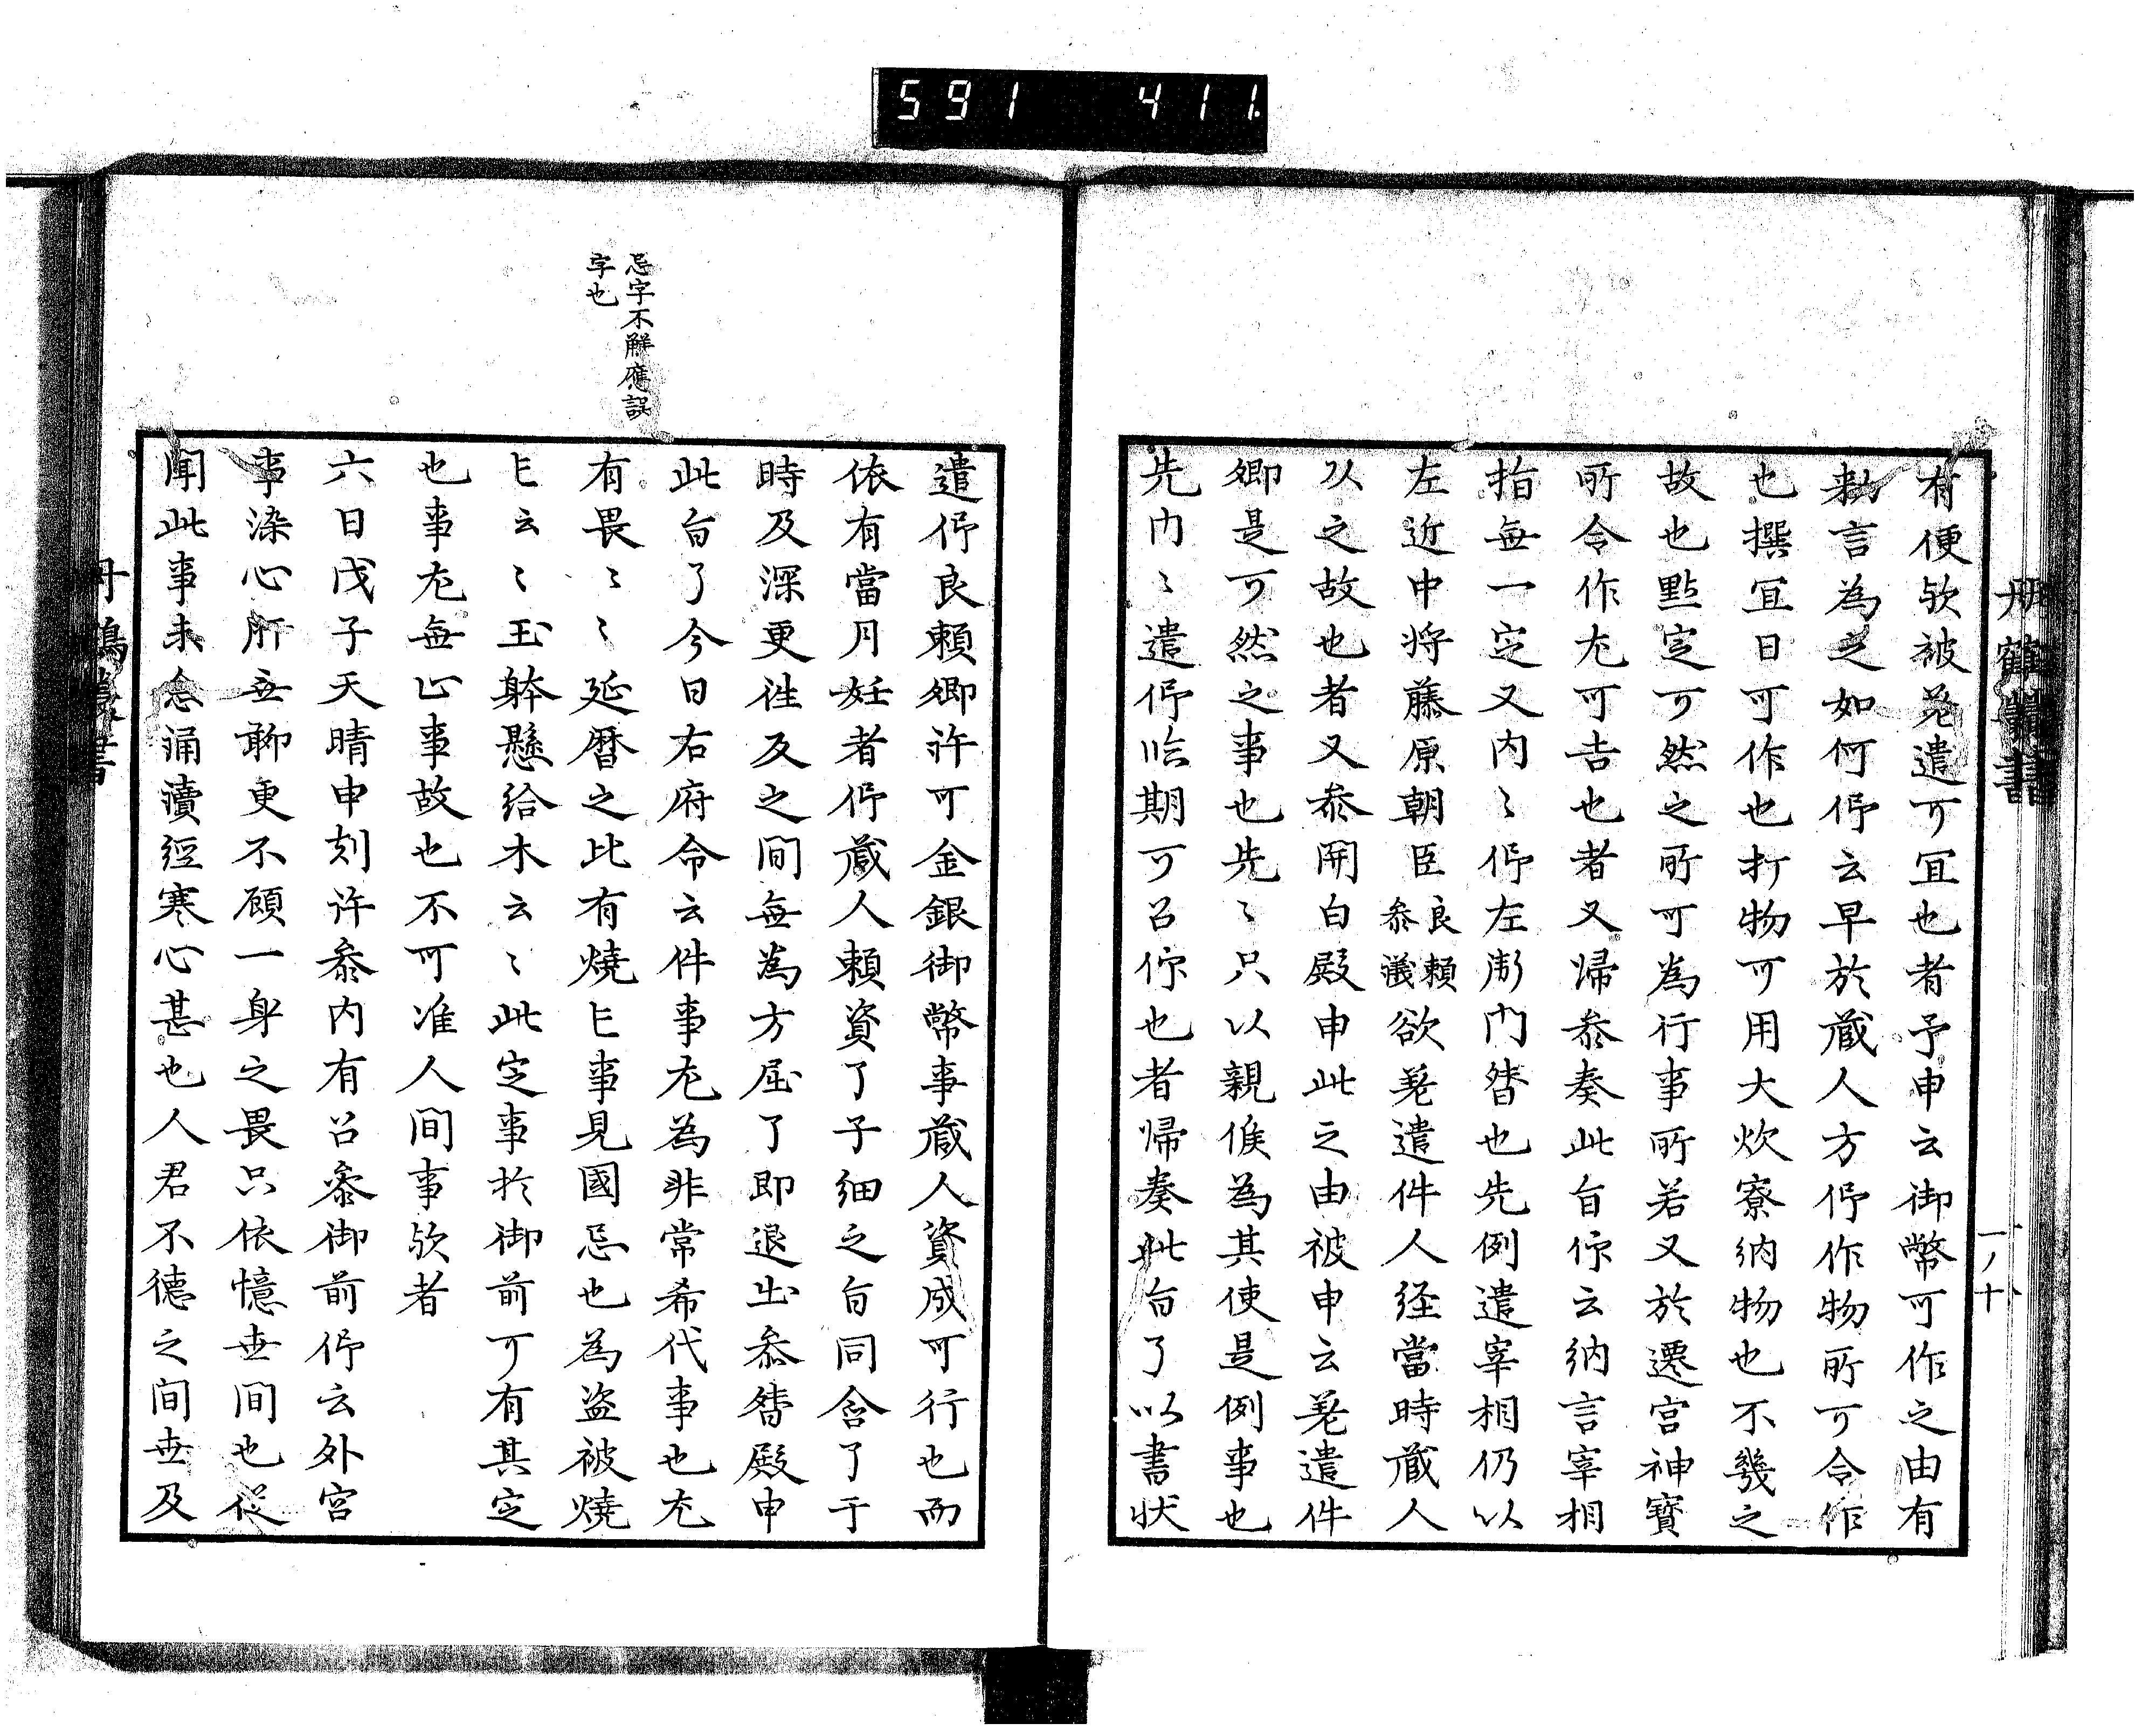 591 411
丹鶴叢書
一ノ十
有便欤被差遣可宜也者予申云御幣可作之由有
勅言為之如何仰云早於蔵人方仰作物所可令作
也撰宜日可作也打物可用大炊寮納物也不幾之
故也點定可然之所可為行事所若又於遷宮神寶
所令作尤可吉也者又帰参奏此旨仰云納言宰相
指無一定又内〻仰左衛門督也先例遣宰相仍以
左近中将藤原朝臣良頼参議欲差遣件人経當時蔵人
以之故也者又参関白殿申此之由被申云差遣件
卿是可然之事也先〻只以親候為其使是例事也
先内〻遣仰臨期可召仰也者帰奏此旨了以書状
遣仰良頼卿許可金銀御幣事蔵人資成可行也而
依有當月妊者仰蔵人頼資了子細之旨同含了于
時及深更徃及之間無為方屈了即退出参督殿申
此旨了今日右府命云件事尤為非常希代事也尤
有畏〻〻延暦之比有燒亡事見國忌也為盗被燒
亡云〻玉躰懸給木云〻此定事於御前可有其定
也事尤無止事故也不可准人間事欤者
六日戊子天晴申刻許参内有召参御前仰云外宮
事染心肝無聊更不顧一身之畏只依憶世間也従
聞此事未念涌瀆經寒心甚也人君不德之間世及
忌字不解應誤
字也